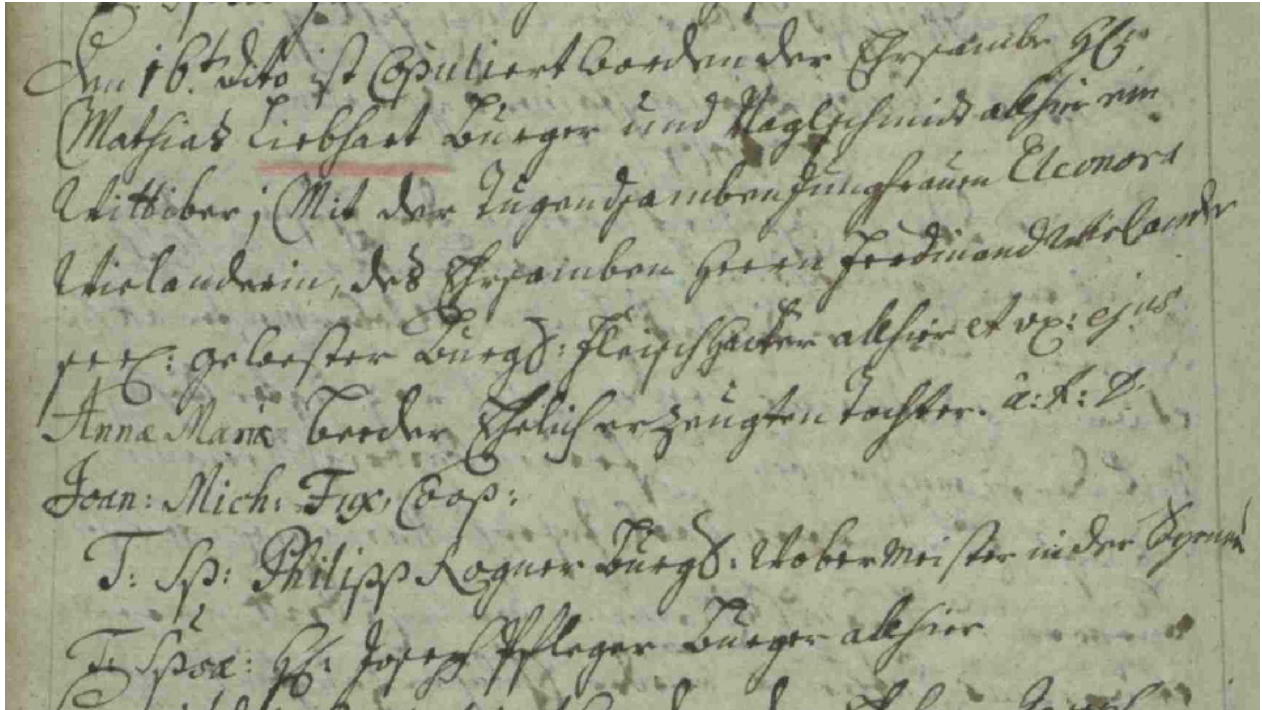 Den 16t. dito ist Copuliert worden der Ehrsambe H:
Mathias Liebhart Burger und Naglschmidt alhier ein
Wittiber; Mit der Tugendsamben Jungfrauen Eleonora
Wielanderin, des Ehrsamben Herrn Ferdinand Wielander
seel: gewester Burgl: Fleischhacker alhier et ux: ejus
Annæ Mariæ beeder Ehelich erzeugten Tochter. a: A: D:
Joan: Mich: Fux, Coop:
T: Sp: Philipp Rogner Burgl: Webermeister in der
T: Spæ: H: Joseph Pfleger Burger alhier